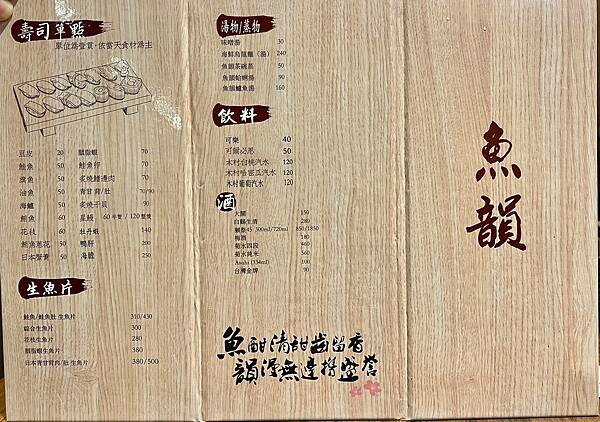 壽司單點
單位為壹貫·依當天食材為主
豆皮 20
鮭魚 50
旗魚 50
油魚 50
海鱺 50
鮪魚 60
花枝 60
鮪魚蔥花 50
日本蟹黃 50
胭脂蝦 70
鮭魚卵 70
炙燒鰭邊肉 70
青甘 背/肚 70/90
炙燒干貝 90
星鰻 60 半隻 / 120 整隻
牡丹蝦 140
鴨肝 200
海膽 230
生魚片
鮭魚/鮭魚肚 生魚片 310/430
綜合生魚片 300
花枝生魚片 280
胭脂蝦生魚片 380
日本青甘背肉/肚 生魚片 380/500
湯物/蒸物
味噌湯 30
海鮮烏龍麵（湯） 240
魚韻茶碗蒸 50
魚韻蛤蜊湯 90
魚韻鱸魚湯 160
飲料
可樂 40
可爾必思 50
木村白桃汽水 120
木村哈密瓜汽水 120
木村葡萄汽水 120
酒
大關 150
白鶴生清 280
獺祭45 300ml/720ml 850/1850
梅酒 180
菊水四段 460
菊水純米 360
Asahi (334ml) 100
台灣金牌 90
魚酣清甜齒留香
韻浸無邊撐盛譽
魚韻